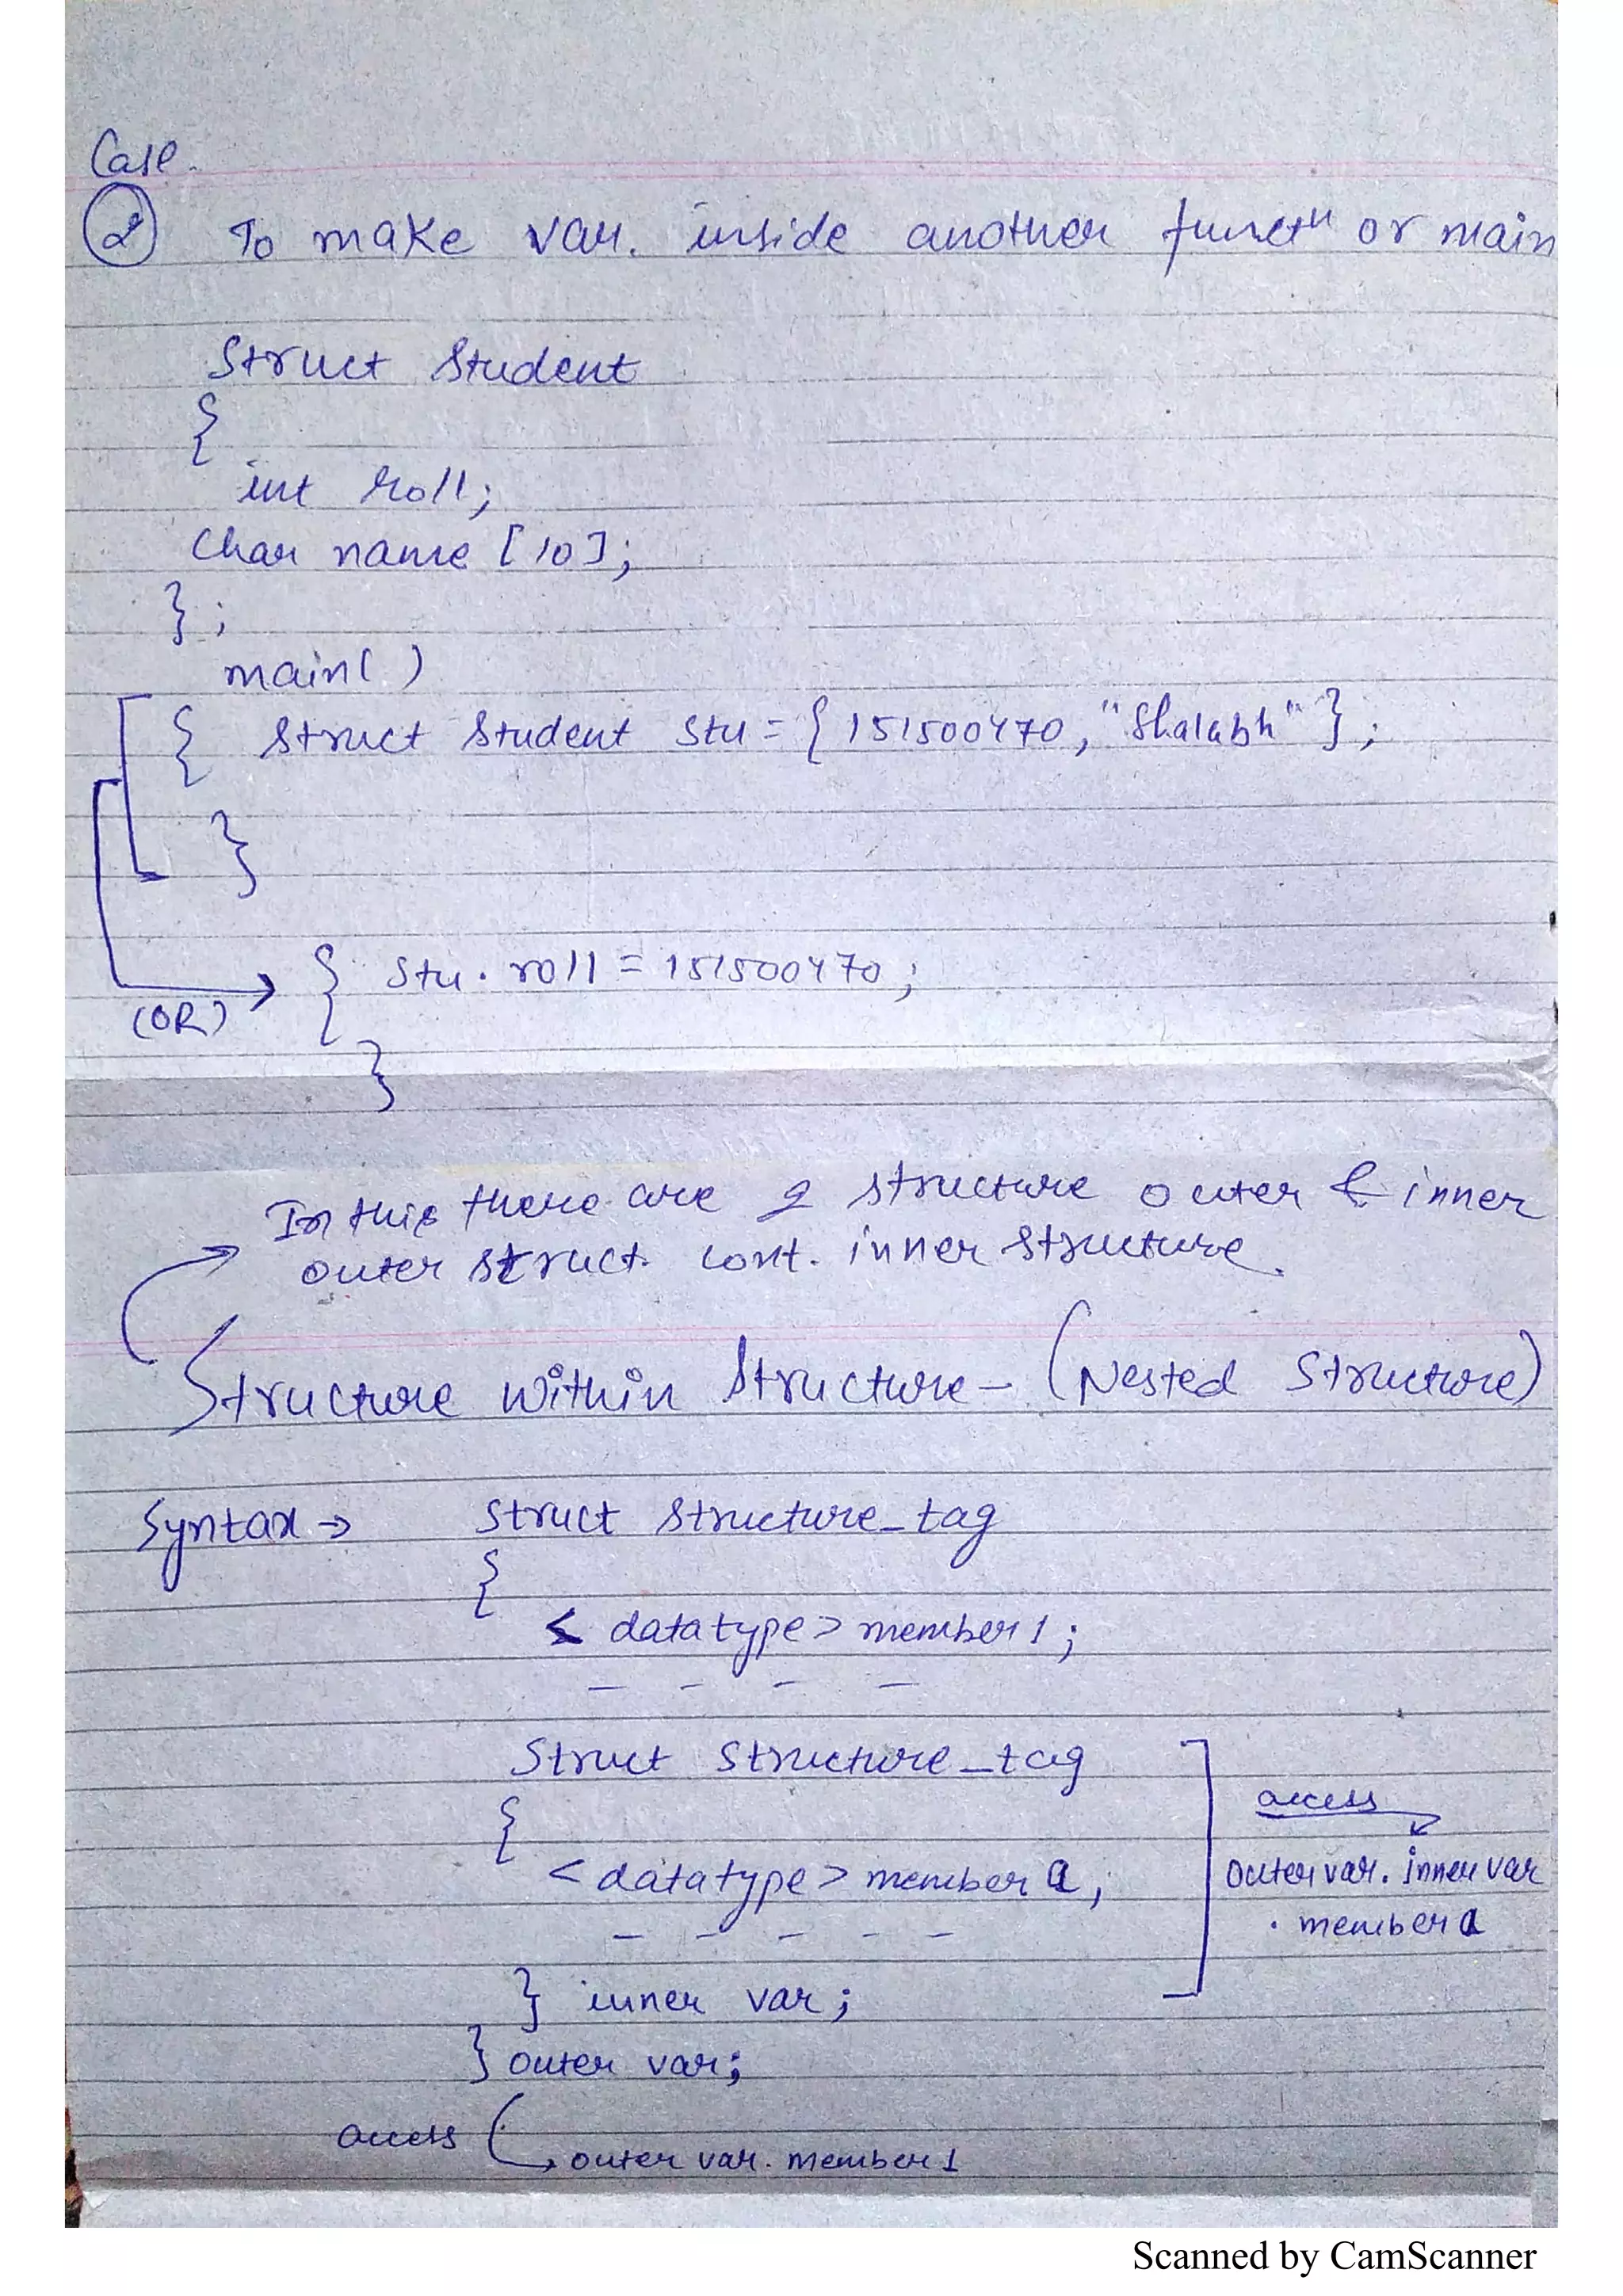 Case.
② To make var. inside another functn or main
Struct Student
{
int roll;
Char name [10];
};
main( )
{ Struct Student Stu = { 151500470, "Shalabh" };
}
(OR) → { Stu. roll = 151500470;
}
In this there are 2 structure outer & inner
outer struct. cont. inner structure.
Structure within Structure - (Nested Structure)
Syntax → Struct Structure_tag
{
< datatype > member 1;
- - - -
Struct Structure_tag
{
access
< datatype > member a;
outer var. inner var
. member a
- - - - -
} inner var;
} outer var;
access
outer var. member 1
Scanned by CamScanner